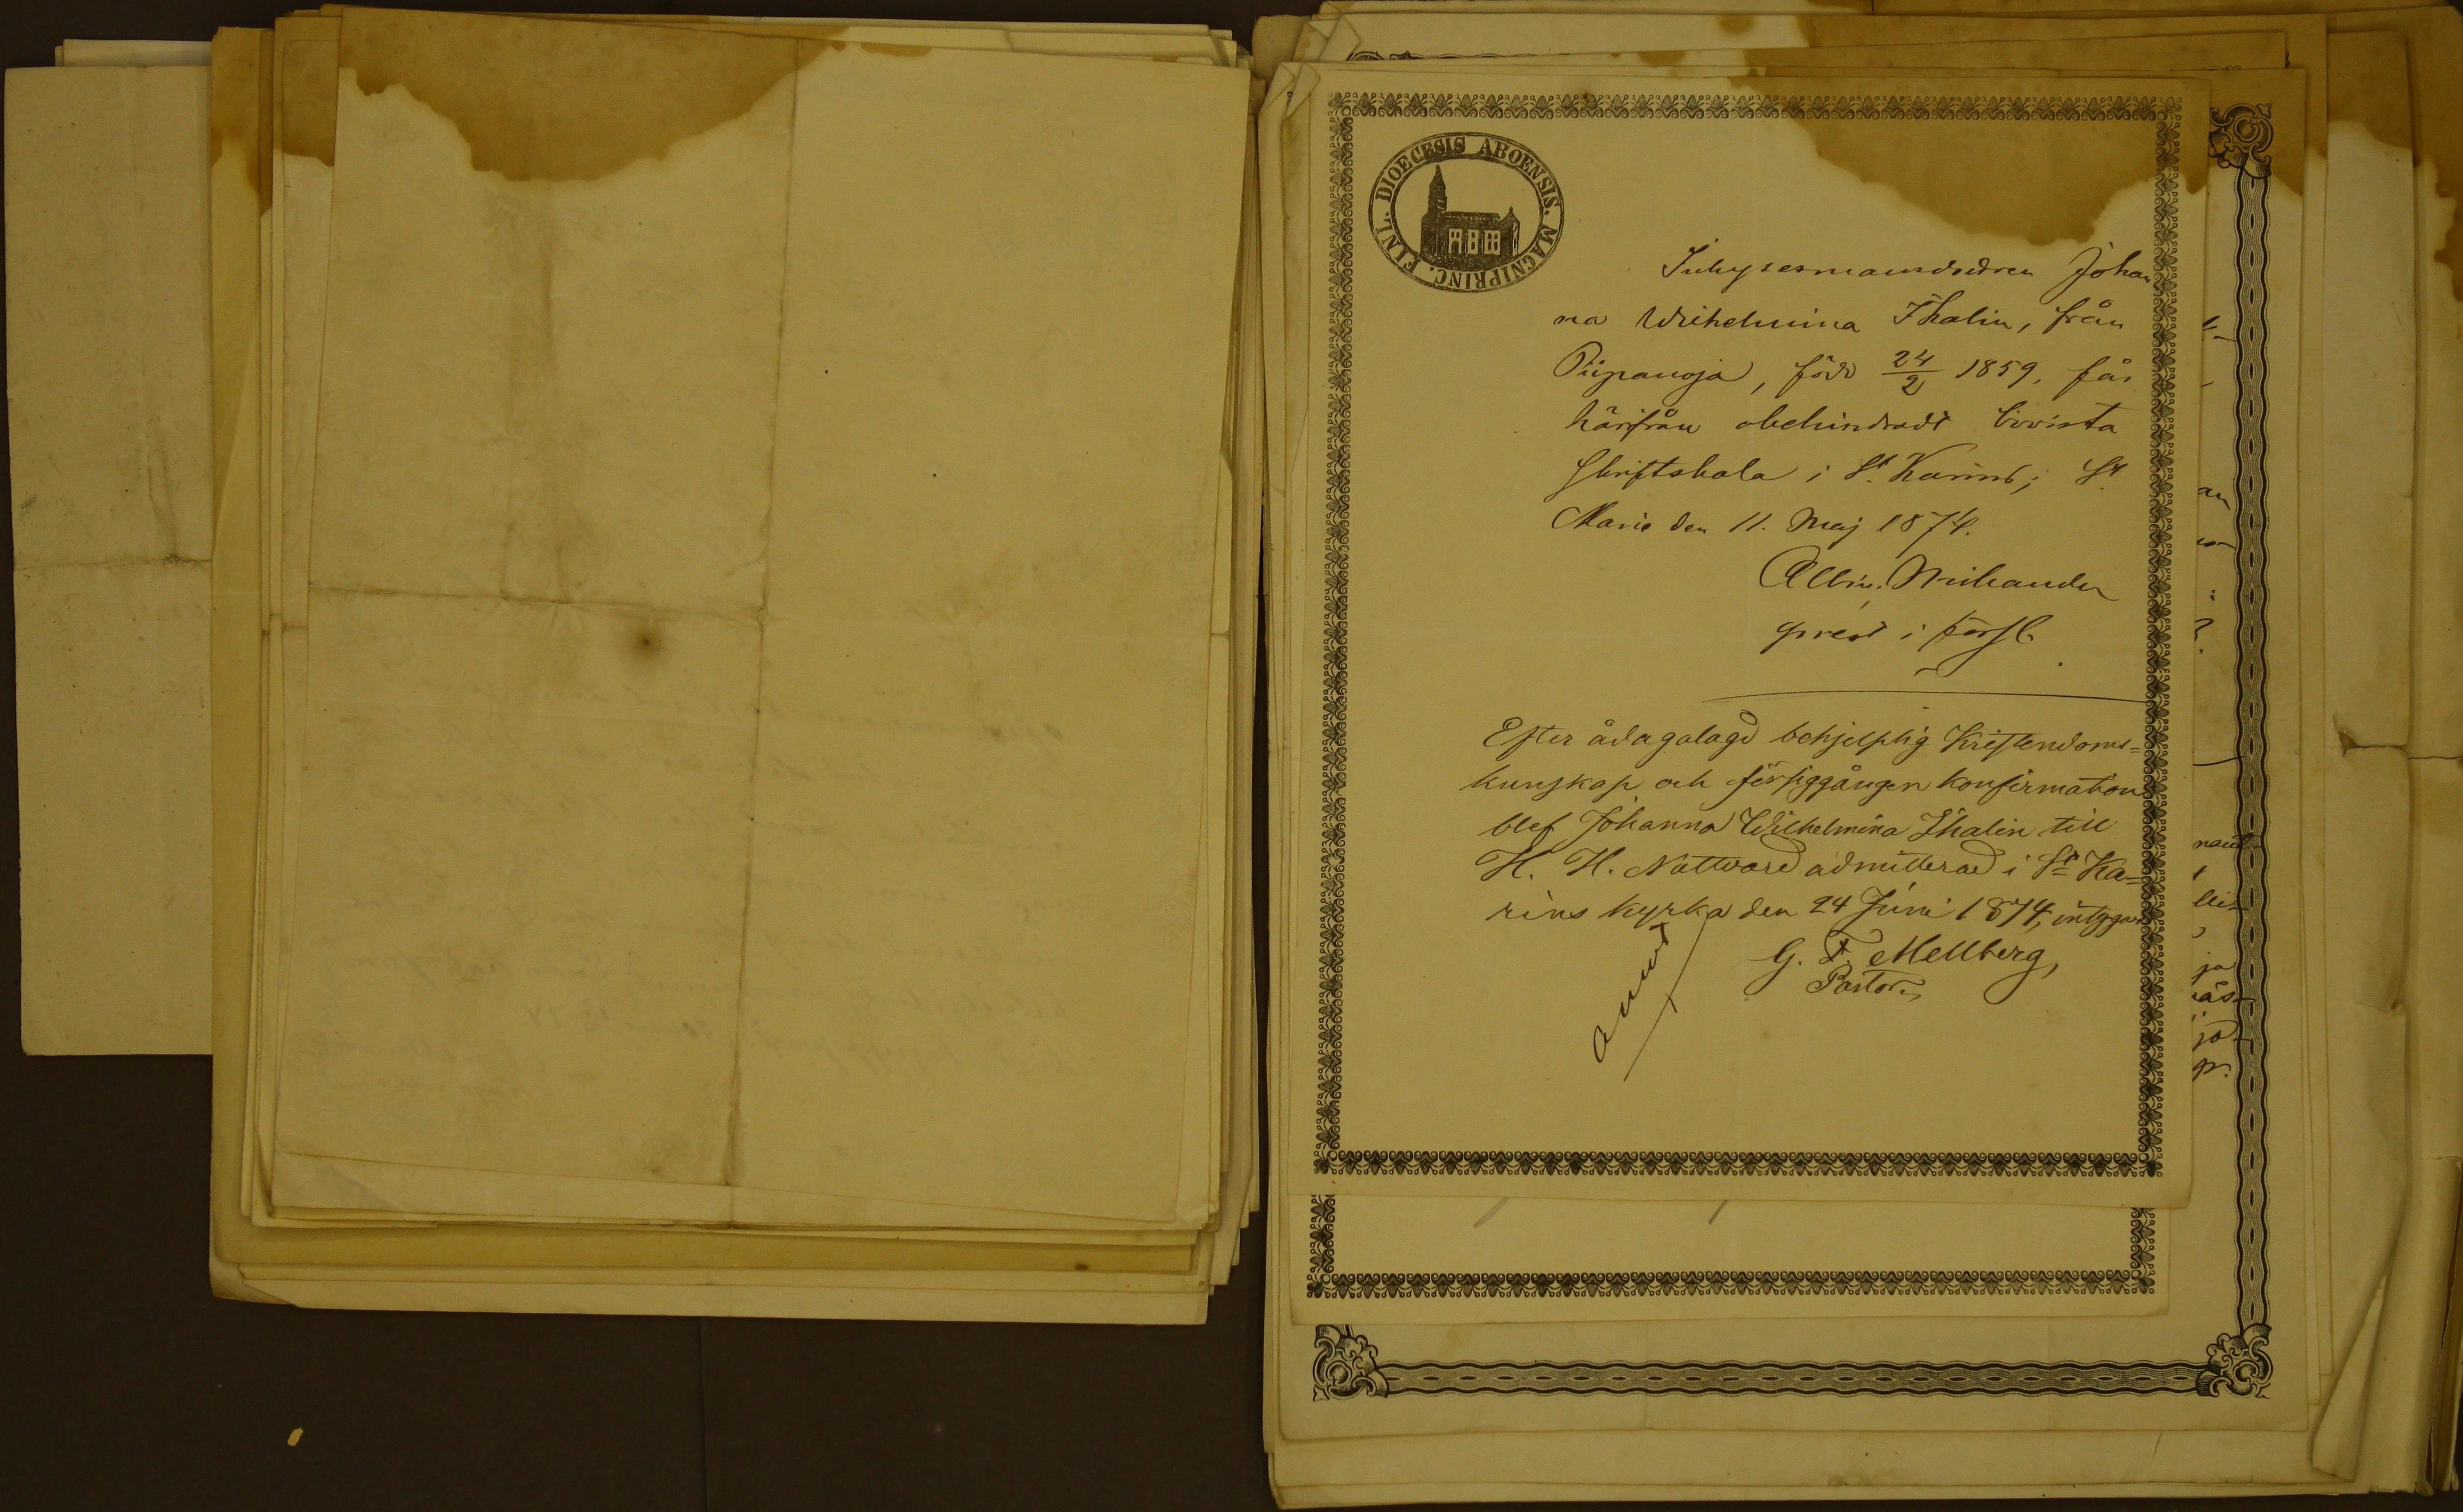 DIOECESIS ABOENSIS. MAGNIPRINC. FINL.
Inhysesmansdottren Johan
na Wilhelmina Thalin, från
Piipanoja, född 24/2 1859, får
härifrån obehindradt bivista
skriftskola i St. Karins; St.
Marie den 11. Maj 1874.
Albin
prest i förs.
Efter ådagalagd behjelplig Kristendoms=
kunskap och försiggången konfirmation
blef Johanna Wilhelmina Thalin till
H. H. Nattvard admitterad i St Ka=
rins kyrka den 24 Juni 1874, intygar
G. F. Mellberg,
Pastor.